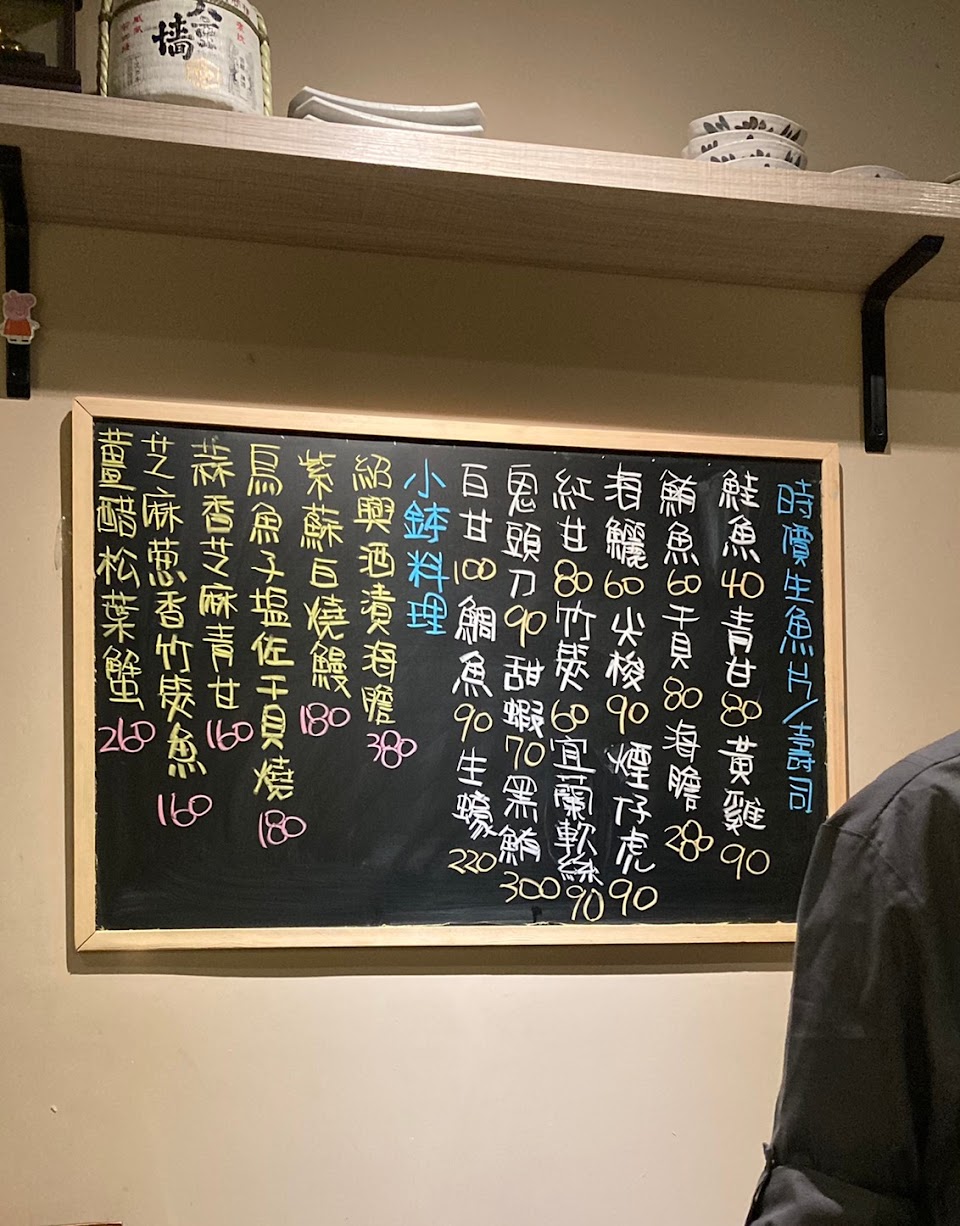 時價生魚片/壽司
鮭魚40青甘80黃雞90
鮪魚60干貝80海膽280
海鱺60尖梭90煙仔虎90
紅甘80竹筴60宜蘭軟絲90
鬼頭刀90甜蝦70黑鮪300
白甘100鯛魚90生蠔220
小鉢料理
紹興酒漬海膽380
紫蘇白燒鰻180
烏魚子塩佐干貝燒180
蒜香芝麻青甘160
芝麻蔥香竹筴魚160
薑醋松葉蟹260